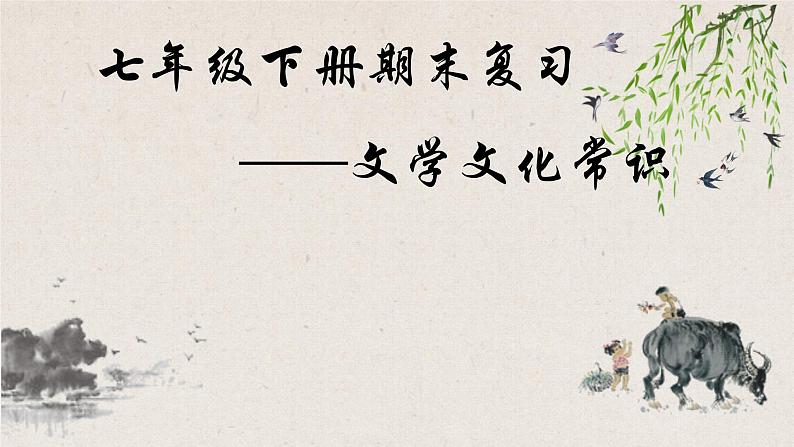 七年级下册期末复习
——文学文化常识